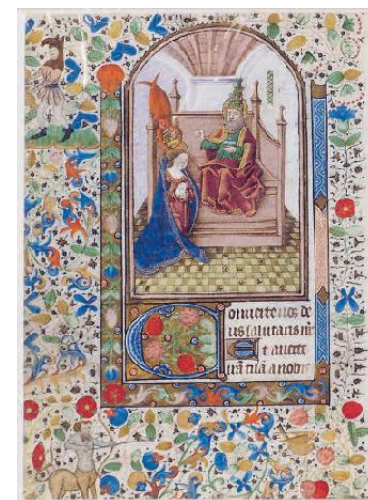 Conuerte nos de
us salutaris nr̄
Et auerte
irā tuā a nobis